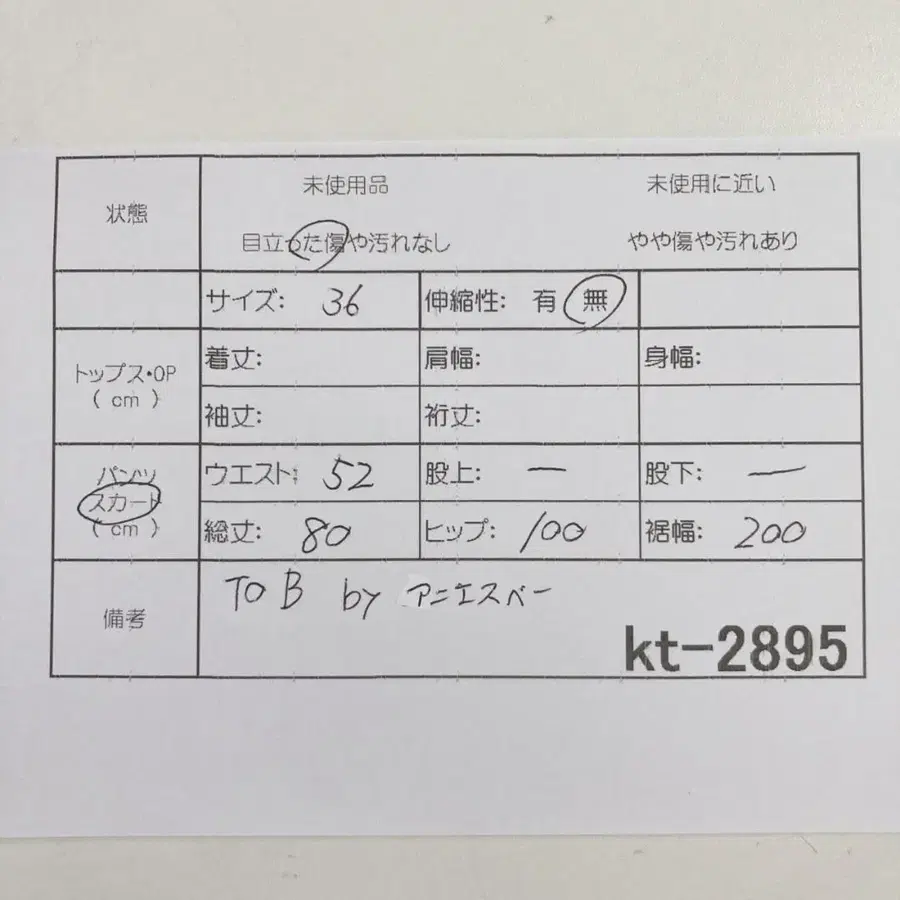 状態
未使用品 未使用に近い
目立った傷や汚れなし やや傷や汚れあり
サイズ: 36 伸縮性: 有 無
トップス・OP
( cm )
着丈: 肩幅: 身幅:
袖丈: 裄丈:
パンツ
スカート
( cm )
ウエスト: 52 股上: ー 股下: ー
総丈: 80 ヒップ: 100 裾幅: 200
備考
TO B by アニエスベー
kt-2895